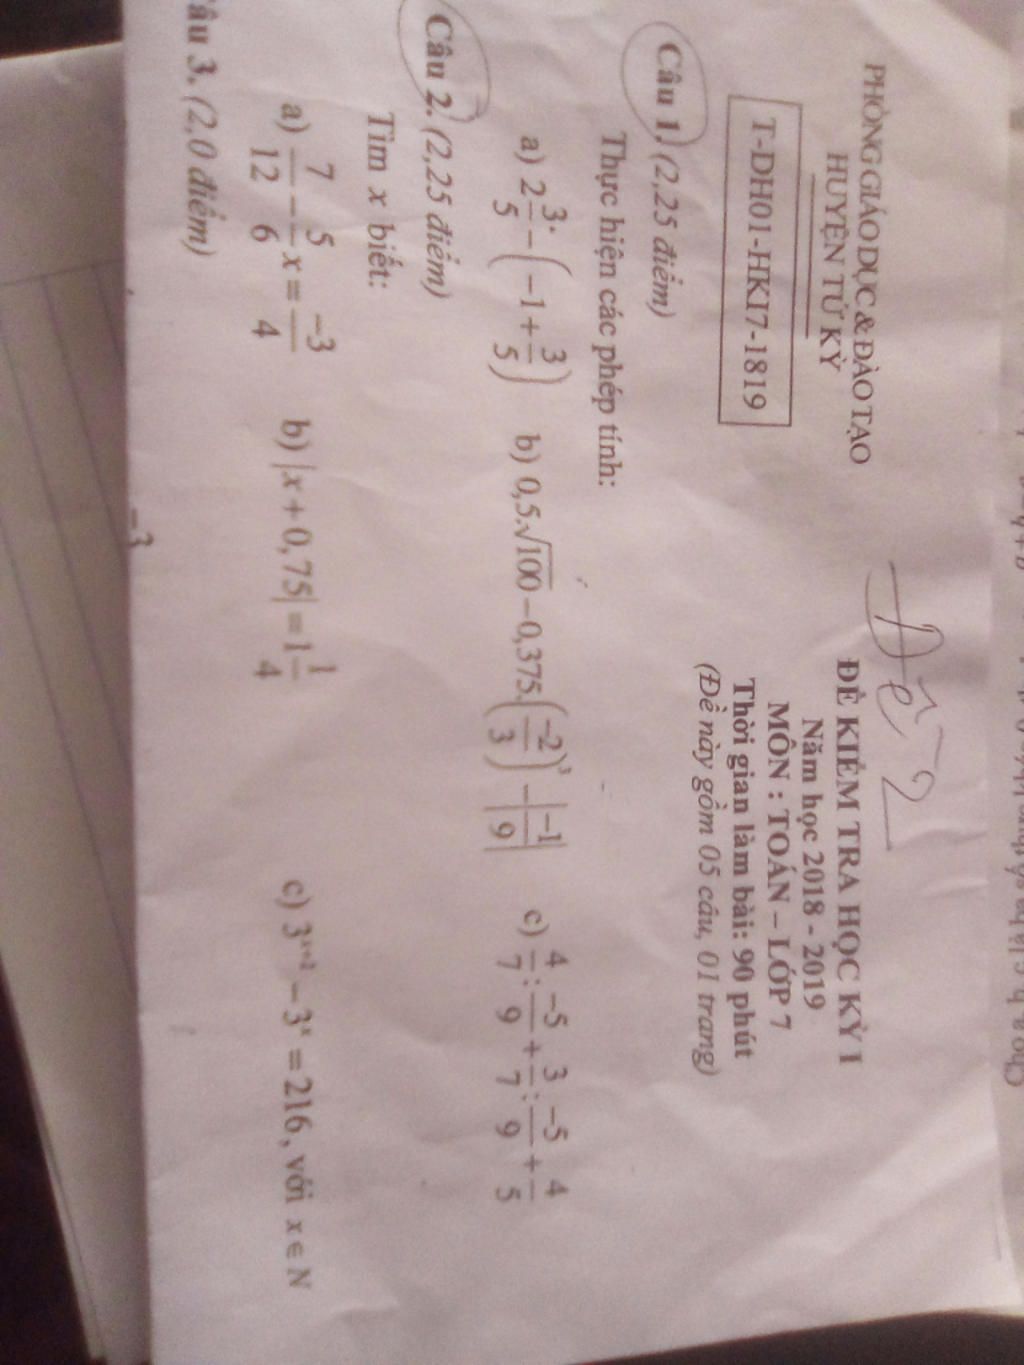 PHÒNG GIÁO DỤC & ĐÀO TẠO
HUYỆN TỨ KỲ
T-DH01-HKI7-1819
Đề 2
ĐỀ KIỂM TRA HỌC KỲ I
Năm học 2018 - 2019
MÔN : TOÁN – LỚP 7
Thời gian làm bài: 90 phút
(Đề này gồm 05 câu, 01 trang)
Câu 1. (2,25 điểm)
Thực hiện các phép tính:
a) 2 3/5 − (−1 + 3/5) b) 0,5.√100 − 0,375.(−2/3)³ − |−1/9| c) 4/7 : −5/9 + 3/7 : −5/9 + 4/5
Câu 2. (2,25 điểm)
Tìm x biết:
a) 7/12 − 5/6 x = −3/4 b) |x + 0,75| = 1 1/4 c) 3ˣ⁺² − 3ˣ = 216, với x ∈ N
Câu 3. (2,0 điểm)
−3